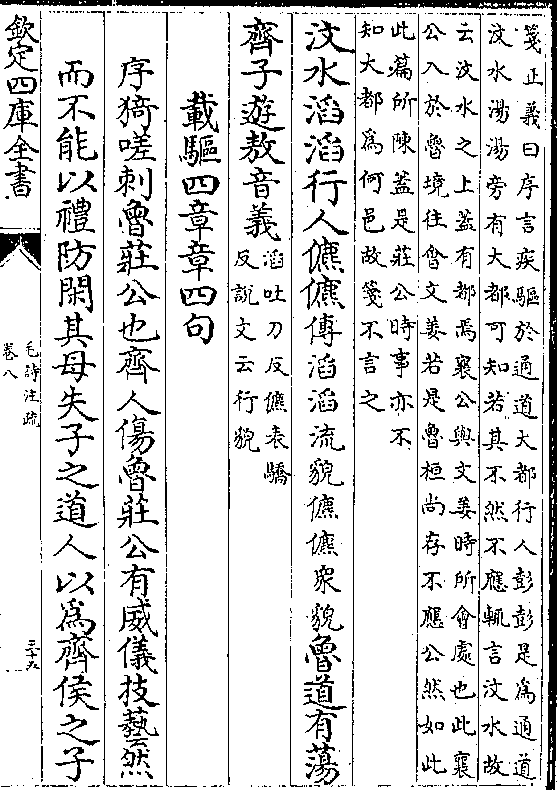 箋正義曰序言疾驅於通道大都行人彭彭是為通道
汶水湯湯旁有大都可知若其不然不應輒言汶水故
云汶水之上蓋有都焉襄公與文姜時所會處也此襄
公入於魯境往會文姜若是魯桓尚存不應公然如此
此篇所陳蓋是莊公時事亦不
知大都為何邑故箋不言之
汶水滔滔行人儦儦傳滔滔流貌儦儦衆貌魯道有蕩
齊子遊敖音義滔吐刀反儦表驕
反説文云行貌
載驅四章章四句
序猗嗟刺魯莊公也齊人傷魯莊公有威儀技藝然
而不能以禮防閑其母失子之道人以為齊侯之子
欽定四庫全書
毛詩注疏
卷八
三十五